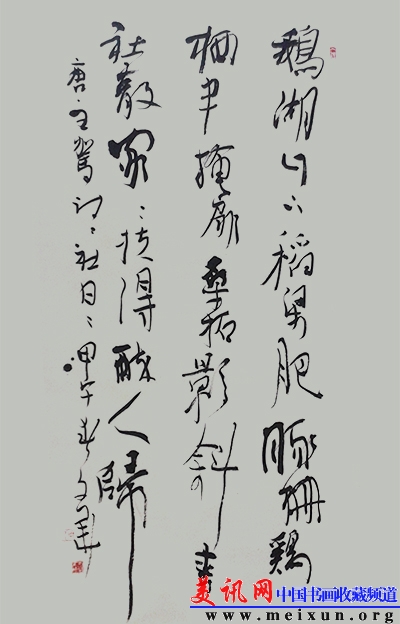 鵝湖山下稻粱肥豚柵鷄
栖半掩扉桑柘影斜春
社散家〻扶得醉人歸
唐王駕詩社日甲午春文
美讯网 中国书画收藏频道
www.meixun.org